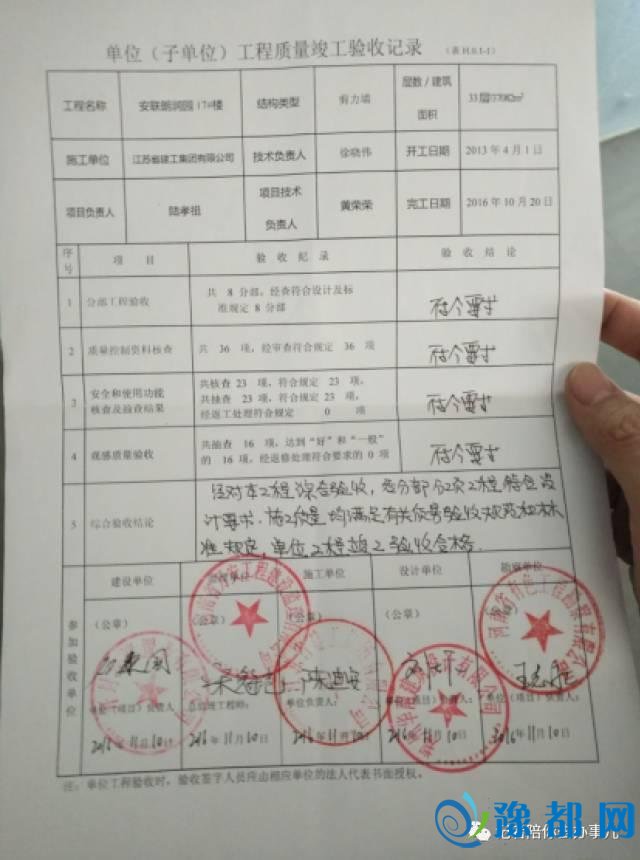 单位（子单位）工程质量竣工验收记录 （表H.0.1-1）
工程名称 安联朗润园17#楼 结构类型 剪力墙 层数/建筑面积 33层/
施工单位 江苏省建工集团有限公司 技术负责人 徐晓伟 开工日期 2013年4月1日
项目负责人 陆孝祖 项目技术负责人 黄荣荣 完工日期 2016年10月20日
序号 项 目 验 收 纪 录 验 收 结 论
1 分部工程验收 共 8 分部，经查符合设计及标
准规定 8 分部 符合要求
2 质量控制资料核查 共 36 项，经审查符合规定 36 项 符合要求
3 安全和使用功能
核查及抽查结果 共核查 23 项，符合规定 23 项，
共抽查 23 项，符合规定 23 项，
经返工处理符合规定 0 项 符合要求
4 观感质量验收 共抽查 16 项，达到“好”和“一般”
的 16 项，经返修处理符合要求的 0 项 符合要求
5 综合验收结论 经对本工程综合验收，各分部分项工程符合设
计要求，施工质量均满足有关质量验收规范和标
准规定，单位工程竣工验收合格。
参加验收单位
建设单位 监理单位 施工单位 设计单位 勘察单位
（公章） （公章） （公章） （公章） （公章）
单位（项目）负责人 总监理工程师： 单位负责人： 单位（项目）负责人： 单位（项目）负责人：
2016年11月10日 2016年11月10日 2016年11月10日 2016年11月10日 2016年11月10
注：单位工程验收时，验收签字人员应由相应单位的法人代表书面授权。
豫都网